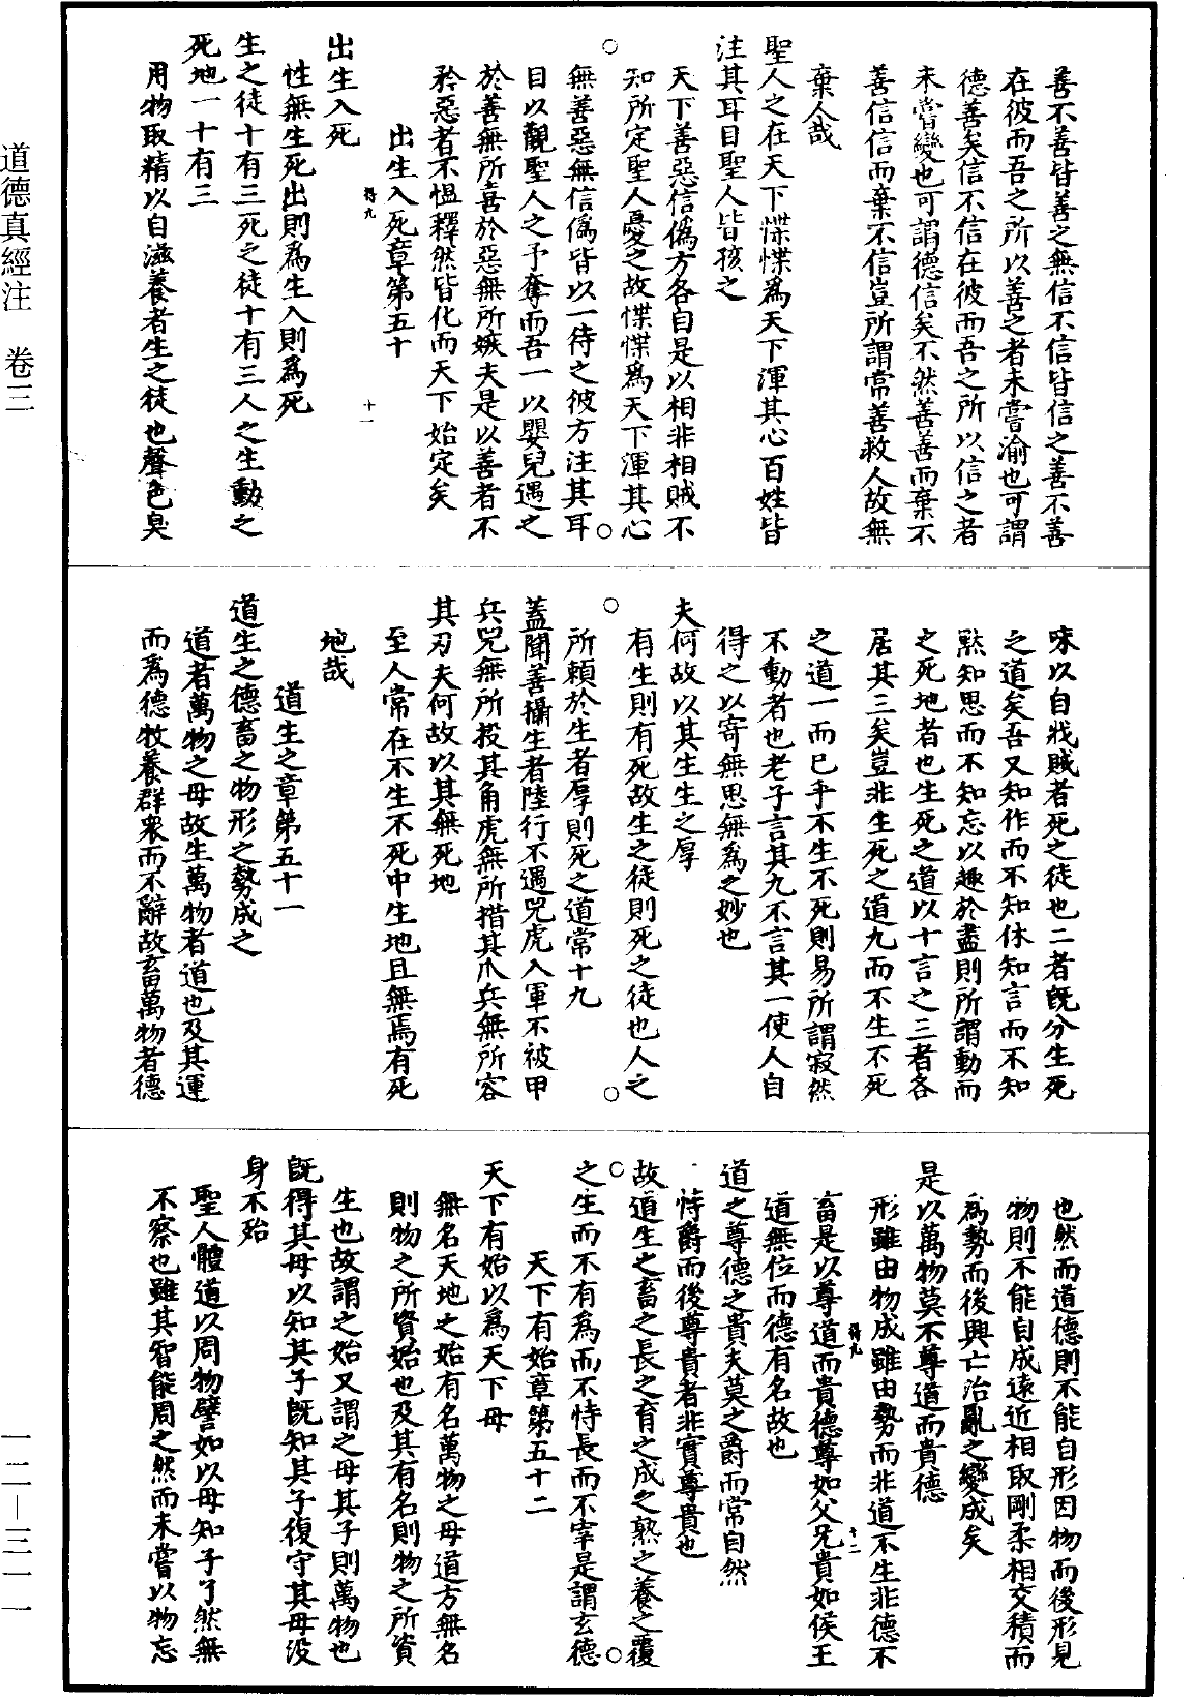 道德真經注　卷三
善不善皆善之無信不信皆信之善不善
在彼而吾之所以善之者未嘗渝也可謂
德善矣信不信在彼而吾之所以信之者
未嘗變也可謂德信矣不然善善而棄不
善信信而棄不信豈所謂常善救人故無
棄人哉
聖人之在天下惵惵爲天下渾其心百姓皆
注其耳目聖人皆孩之
天下善惡信僞方各自是以相非相賊不
知所定聖人憂之故惵惵爲天下渾其心
無善惡無信僞皆以一待之彼方注其耳
目以觀聖人之予奪而吾一以嬰兒遇之
於善無所喜於惡無所嫉夫是以善者不
矜惡者不慍釋然皆化而天下始定矣
出生入死章第五十
得九　十一
出生入死
性無生死出則爲生入則爲死
生之徒十有三死之徒十有三人之生動之
死地一十有三
用物取精以自滋養者生之徒也聲色臭
味以自戕賊者死之徒也二者旣分生死
之道矣吾又知作而不知休知言而不知
默知思而不知忘以趣於盡則所謂動而
之死地者也生死之道以十言之三者各
居其三矣豈非生死之道九而不生不死
之道一而已乎不生不死則易所謂寂然
不動者也老子言其九不言其一使人自
得之以寄無思無爲之妙也
夫何故以其生生之厚
有生則有死故生之徒則死之徒也人之
所賴於生者厚則死之道常十九
蓋聞善攝生者陸行不遇兕虎入軍不被甲
兵兕無所投其角虎無所措其爪兵無所容
其刃夫何故以其無死地
至人常在不生不死中生地且無焉有死
地哉
道生之章第五十一
道生之德畜之物形之勢成之
道者萬物之母故生萬物者道也及其運
而爲德牧養群衆而不辭故畜萬物者德
也然而道德則不能自形因物而後形見
物則不能自成遠近相取剛柔相交積而
爲勢而後興亡治亂之變成矣
是以萬物莫不尊道而貴德
形雖由物成雖由勢而非道不生非德不
得九　十二
畜是以尊道而貴德尊如父兄貴如侯王
道無位而德有名故也
道之尊德之貴夫莫之爵而常自然
恃爵而後尊貴者非實尊貴也
故道生之畜之長之育之成之熟之養之覆
之生而不有爲而不恃長而不宰是謂玄德
天下有始章第五十二
天下有始以爲天下母
無名天地之始有名萬物之母道方無名
則物之所資始也及其有名則物之所資
生也故謂之始又謂之母其子則萬物也
旣得其母以知其子旣知其子復守其母沒
身不殆
聖人體道以周物譬如以母知子了然無
不察也雖其智能周之然而未嘗以物忘
一二—三一一